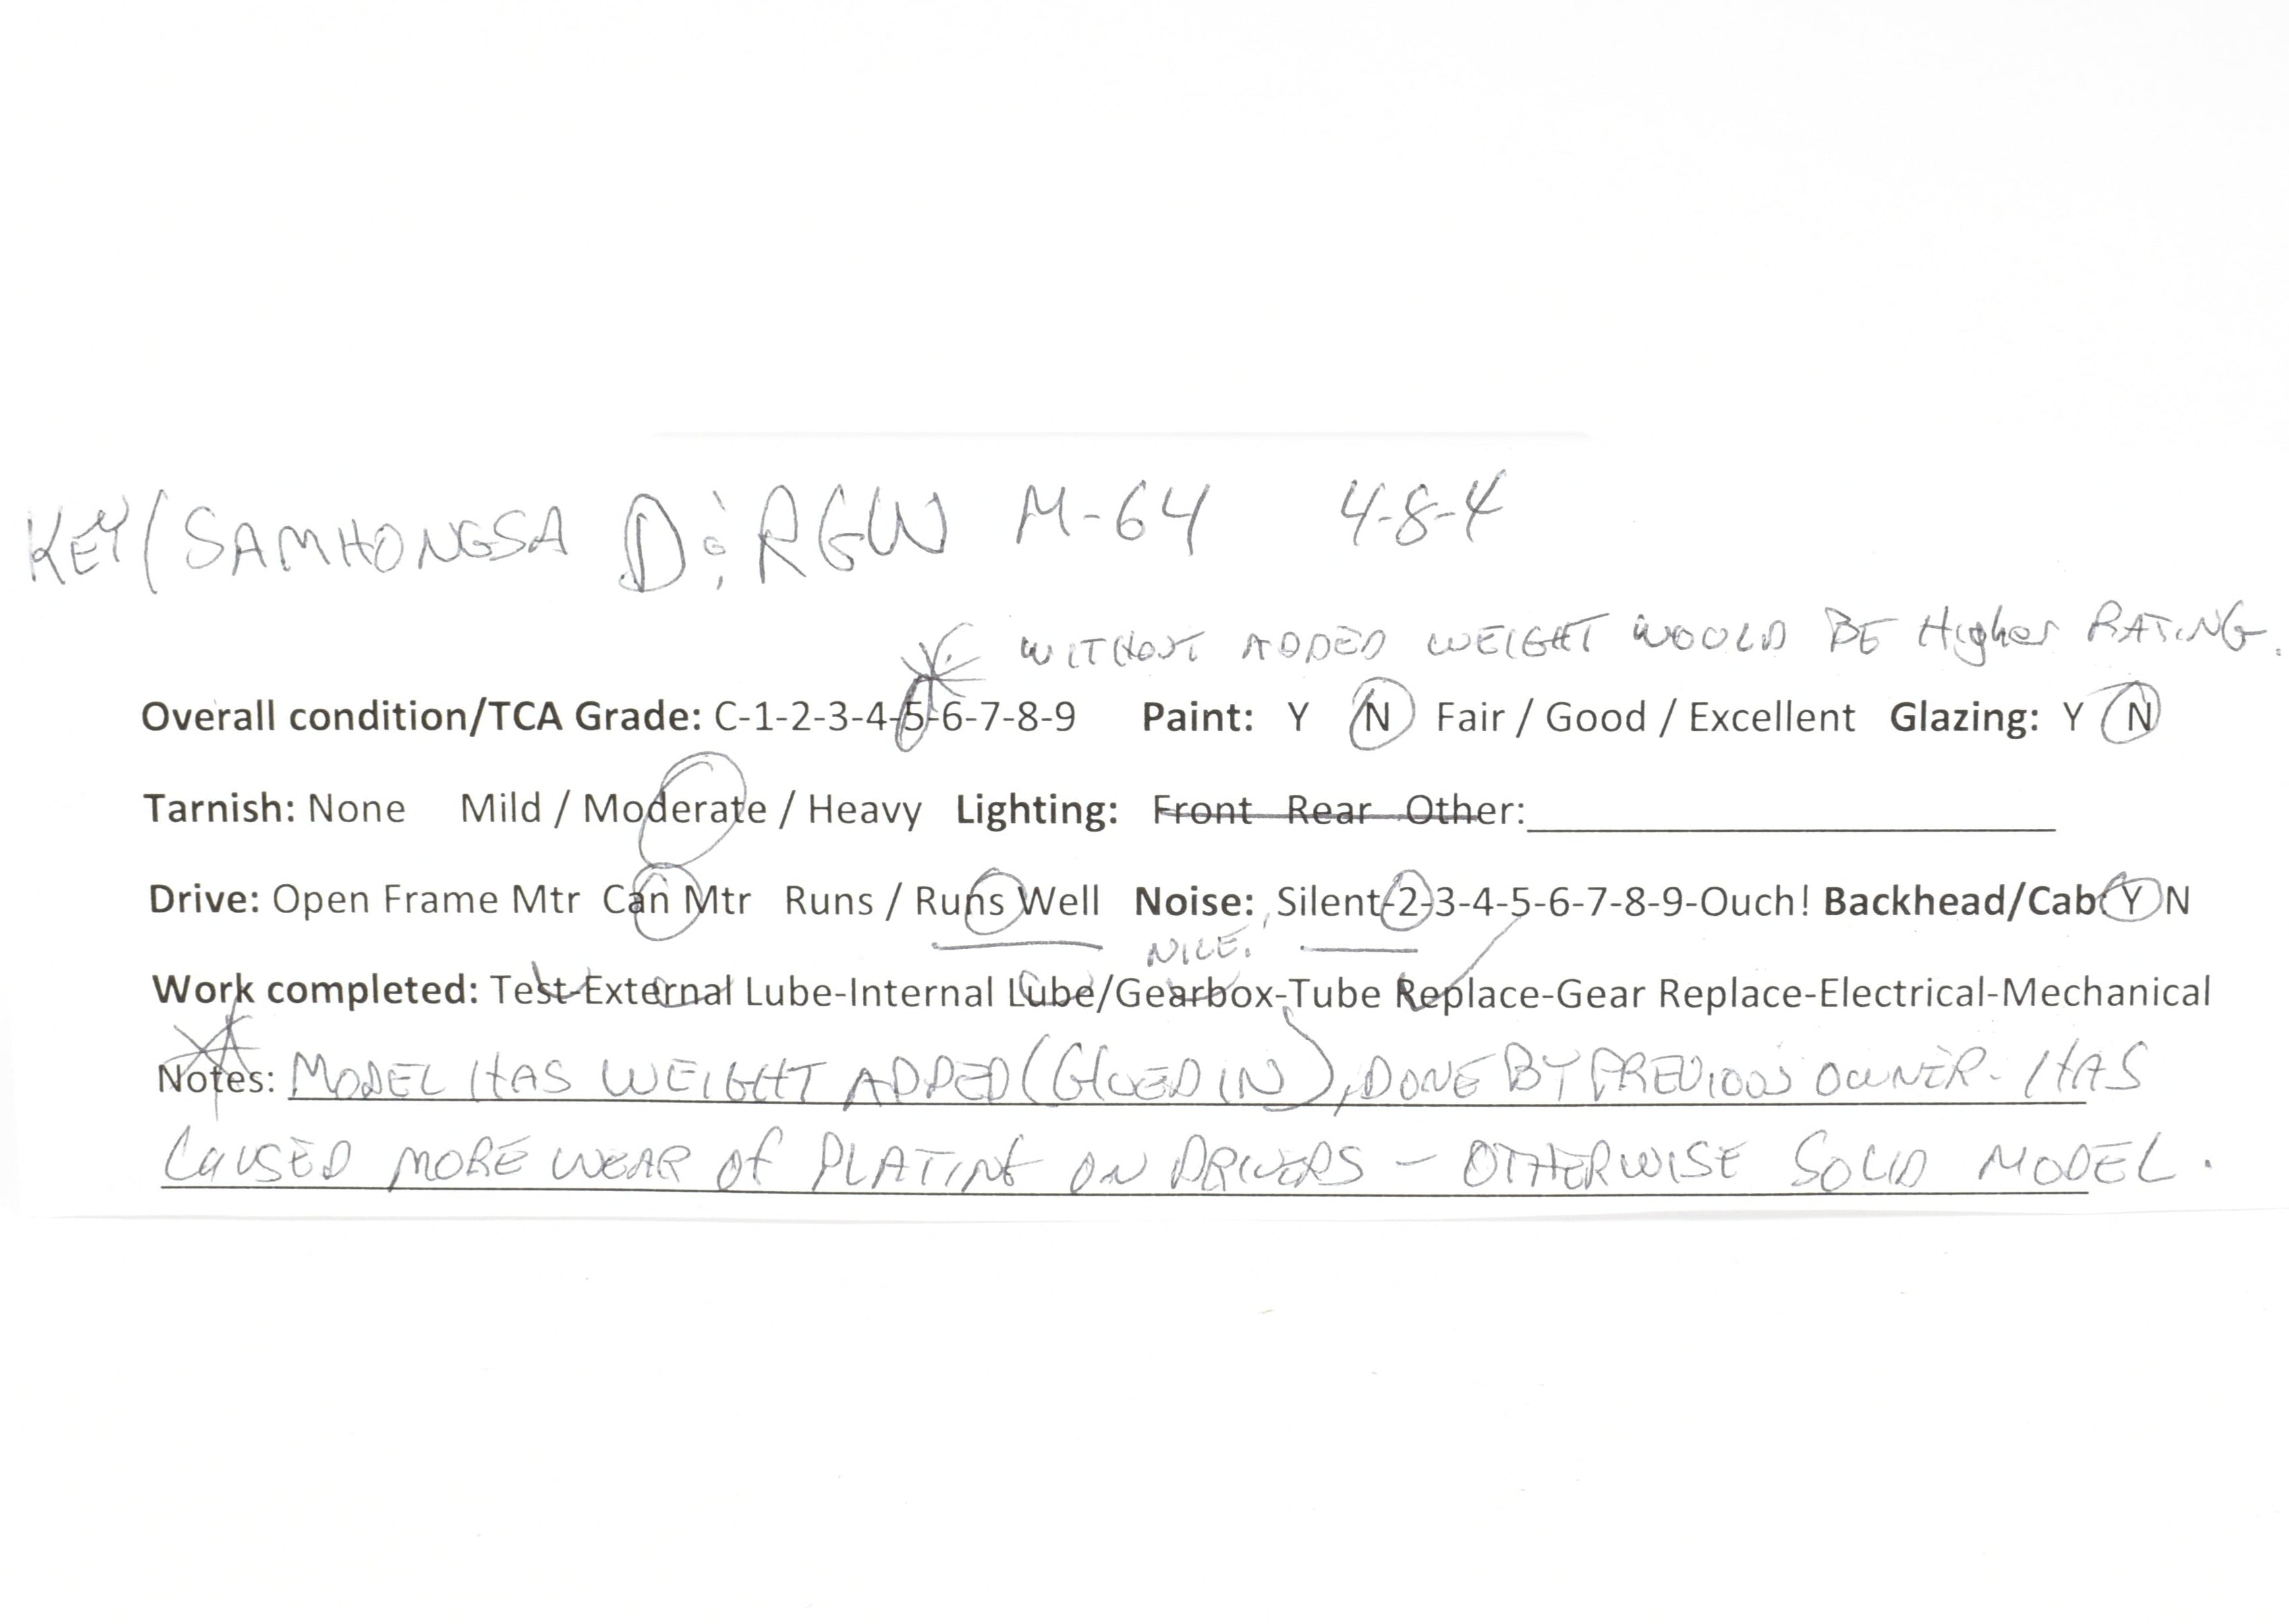 KEY/SAMHONGSA D&RGW M-64 4-8-4
* WITHOUT ADDED WEIGHT WOULD BE HigheR RATING.
Overall condition/TCA Grade: C-1-2-3-4-5-6-7-8-9 Paint: Y N Fair / Good / Excellent Glazing: Y N
Tarnish: None Mild / Moderate / Heavy Lighting: Front Rear Other:
Drive: Open Frame Mtr Can Mtr Runs / Runs Well Noise: Silent-2-3-4-5-6-7-8-9-Ouch! Backhead/Cab Y N
NICE.
Work completed: Test-External Lube-Internal Lube/Gearbox-Tube Replace-Gear Replace-Electrical-Mechanical
Notes: MODEL HAS WEIGHT ADDED (GLUED IN), DONE BY PREVIOUS OWNER. HAS
CAUSED MORE WEAR Of PLATING ON DRIVERS - OTHERWISE SOLID MODEL.